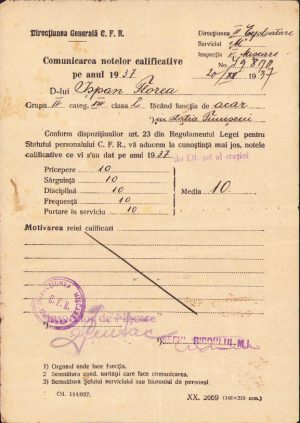 Direcțiunea Generală C. F. R.
Direcțiunea II Exploatare
Serviciul M
Inspecția Mișcare
No. 19.800
20/XII 1937
Comunicarea notelor calificative
pe anul 1937
D-lui Ispan Florea
Grupa II categ. III clasa făcând funcția de acar
Conform dispozițiunilor art. 23 din Regulamentul Legei pentru
Statutul personalului C. F. R., vă aducem la cunoștință mai jos, notele
calificative ce vi s'au dat pe anul 1937
de Dl. șef al stației
Pricepere 10
Sârguință 10
Disciplină 10
Frequență 10
Purtare în serviciu 10
Media 10
Motivarea relei calificări
DIRECȚIUNEA
C. F. R.
ȘEFUL BIROULUI M.I.
1) Organul unde face funcția.
2) Semnătura cond. unității care face comunicarea.
3) Semnătura Șefului serviciului sau biuroului de personal.
Cd. 114/937.
XX. 2669 (148×210 mm.)